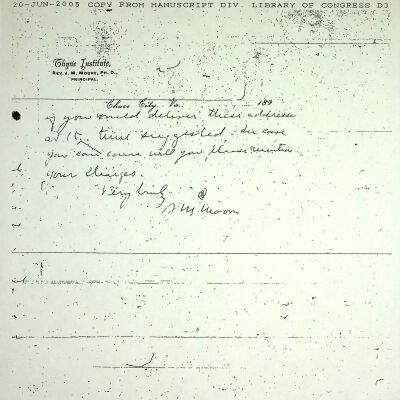 20-JUN-2005 COPY FROM MANUSCRIPT DIV. LIBRARY OF CONGRESS D3
Thyne Institute,
REV. J. M. MOORE, PH. D.,
PRINCIPAL.
Chase City, Va. 189
if you would deliver these addresses
at time suggested. In case
you can come will you please mention
your charges.
Very truly
J. M. Moore